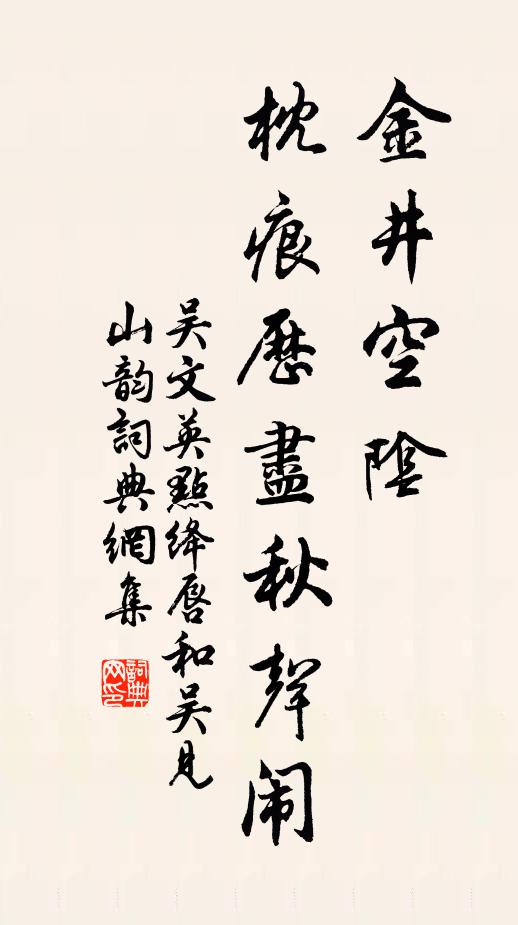 金井空陰
枕痕歷盡秋聲闹
吴文英點绛唇和吴見
山韵詞典網集
詞典网印